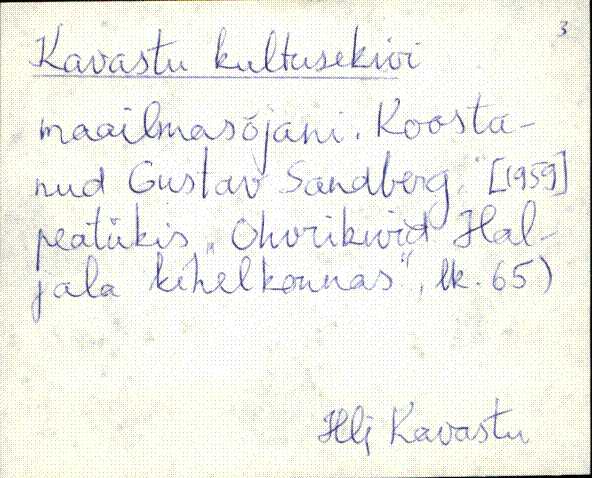 3
Kavastu kultusekivi
maailmasõjani. Koosta-
nud Gustav Sandberg." [1959]
peatükis „Ohvrikivid Hal-
jala kihelkonnas", lk. 65)
Hlj Kavastu